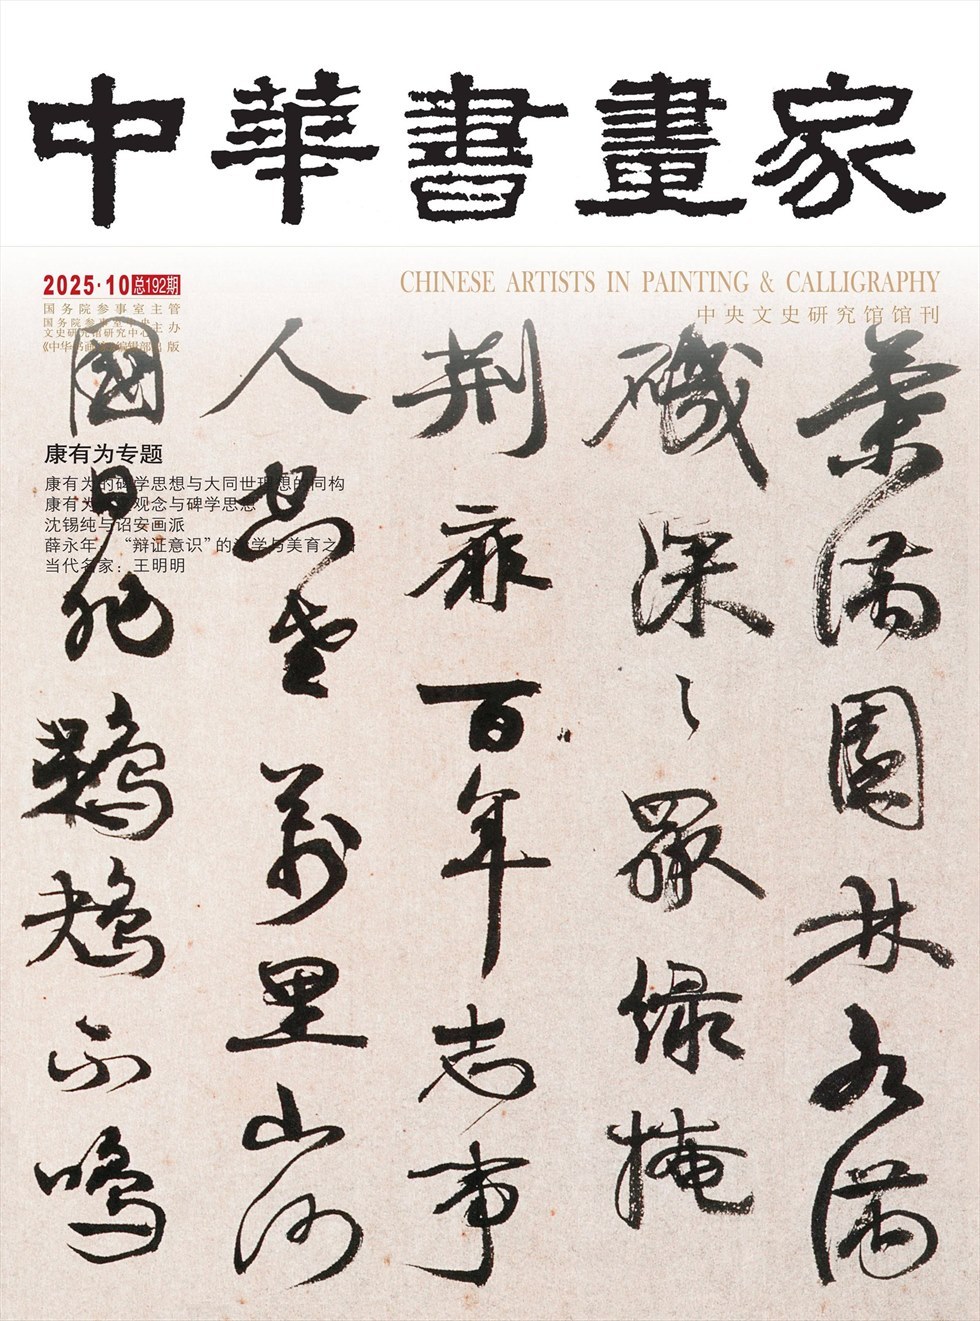 中華書畫家
2025·10 总192期
CHINESE ARTISTS IN PAINTING & CALLIGRAPHY
中央文史研究馆馆刊
国务院参事室主管
国务院参事室中央
文史研究馆研究中心主办
《中华书画家》编辑部出版
康有为专题
康有为的碑学思想与大同世理想的同构
康有为 观念与碑学思想
沈锡纯与诏安画派
薛永年：“辩证意识”的 学与美育之
当代名家：王明明
葉满園林水满
磯深〻罨緑掩
荆扉百年志事
人 萬里山河
國日非鶗鴂不鳴